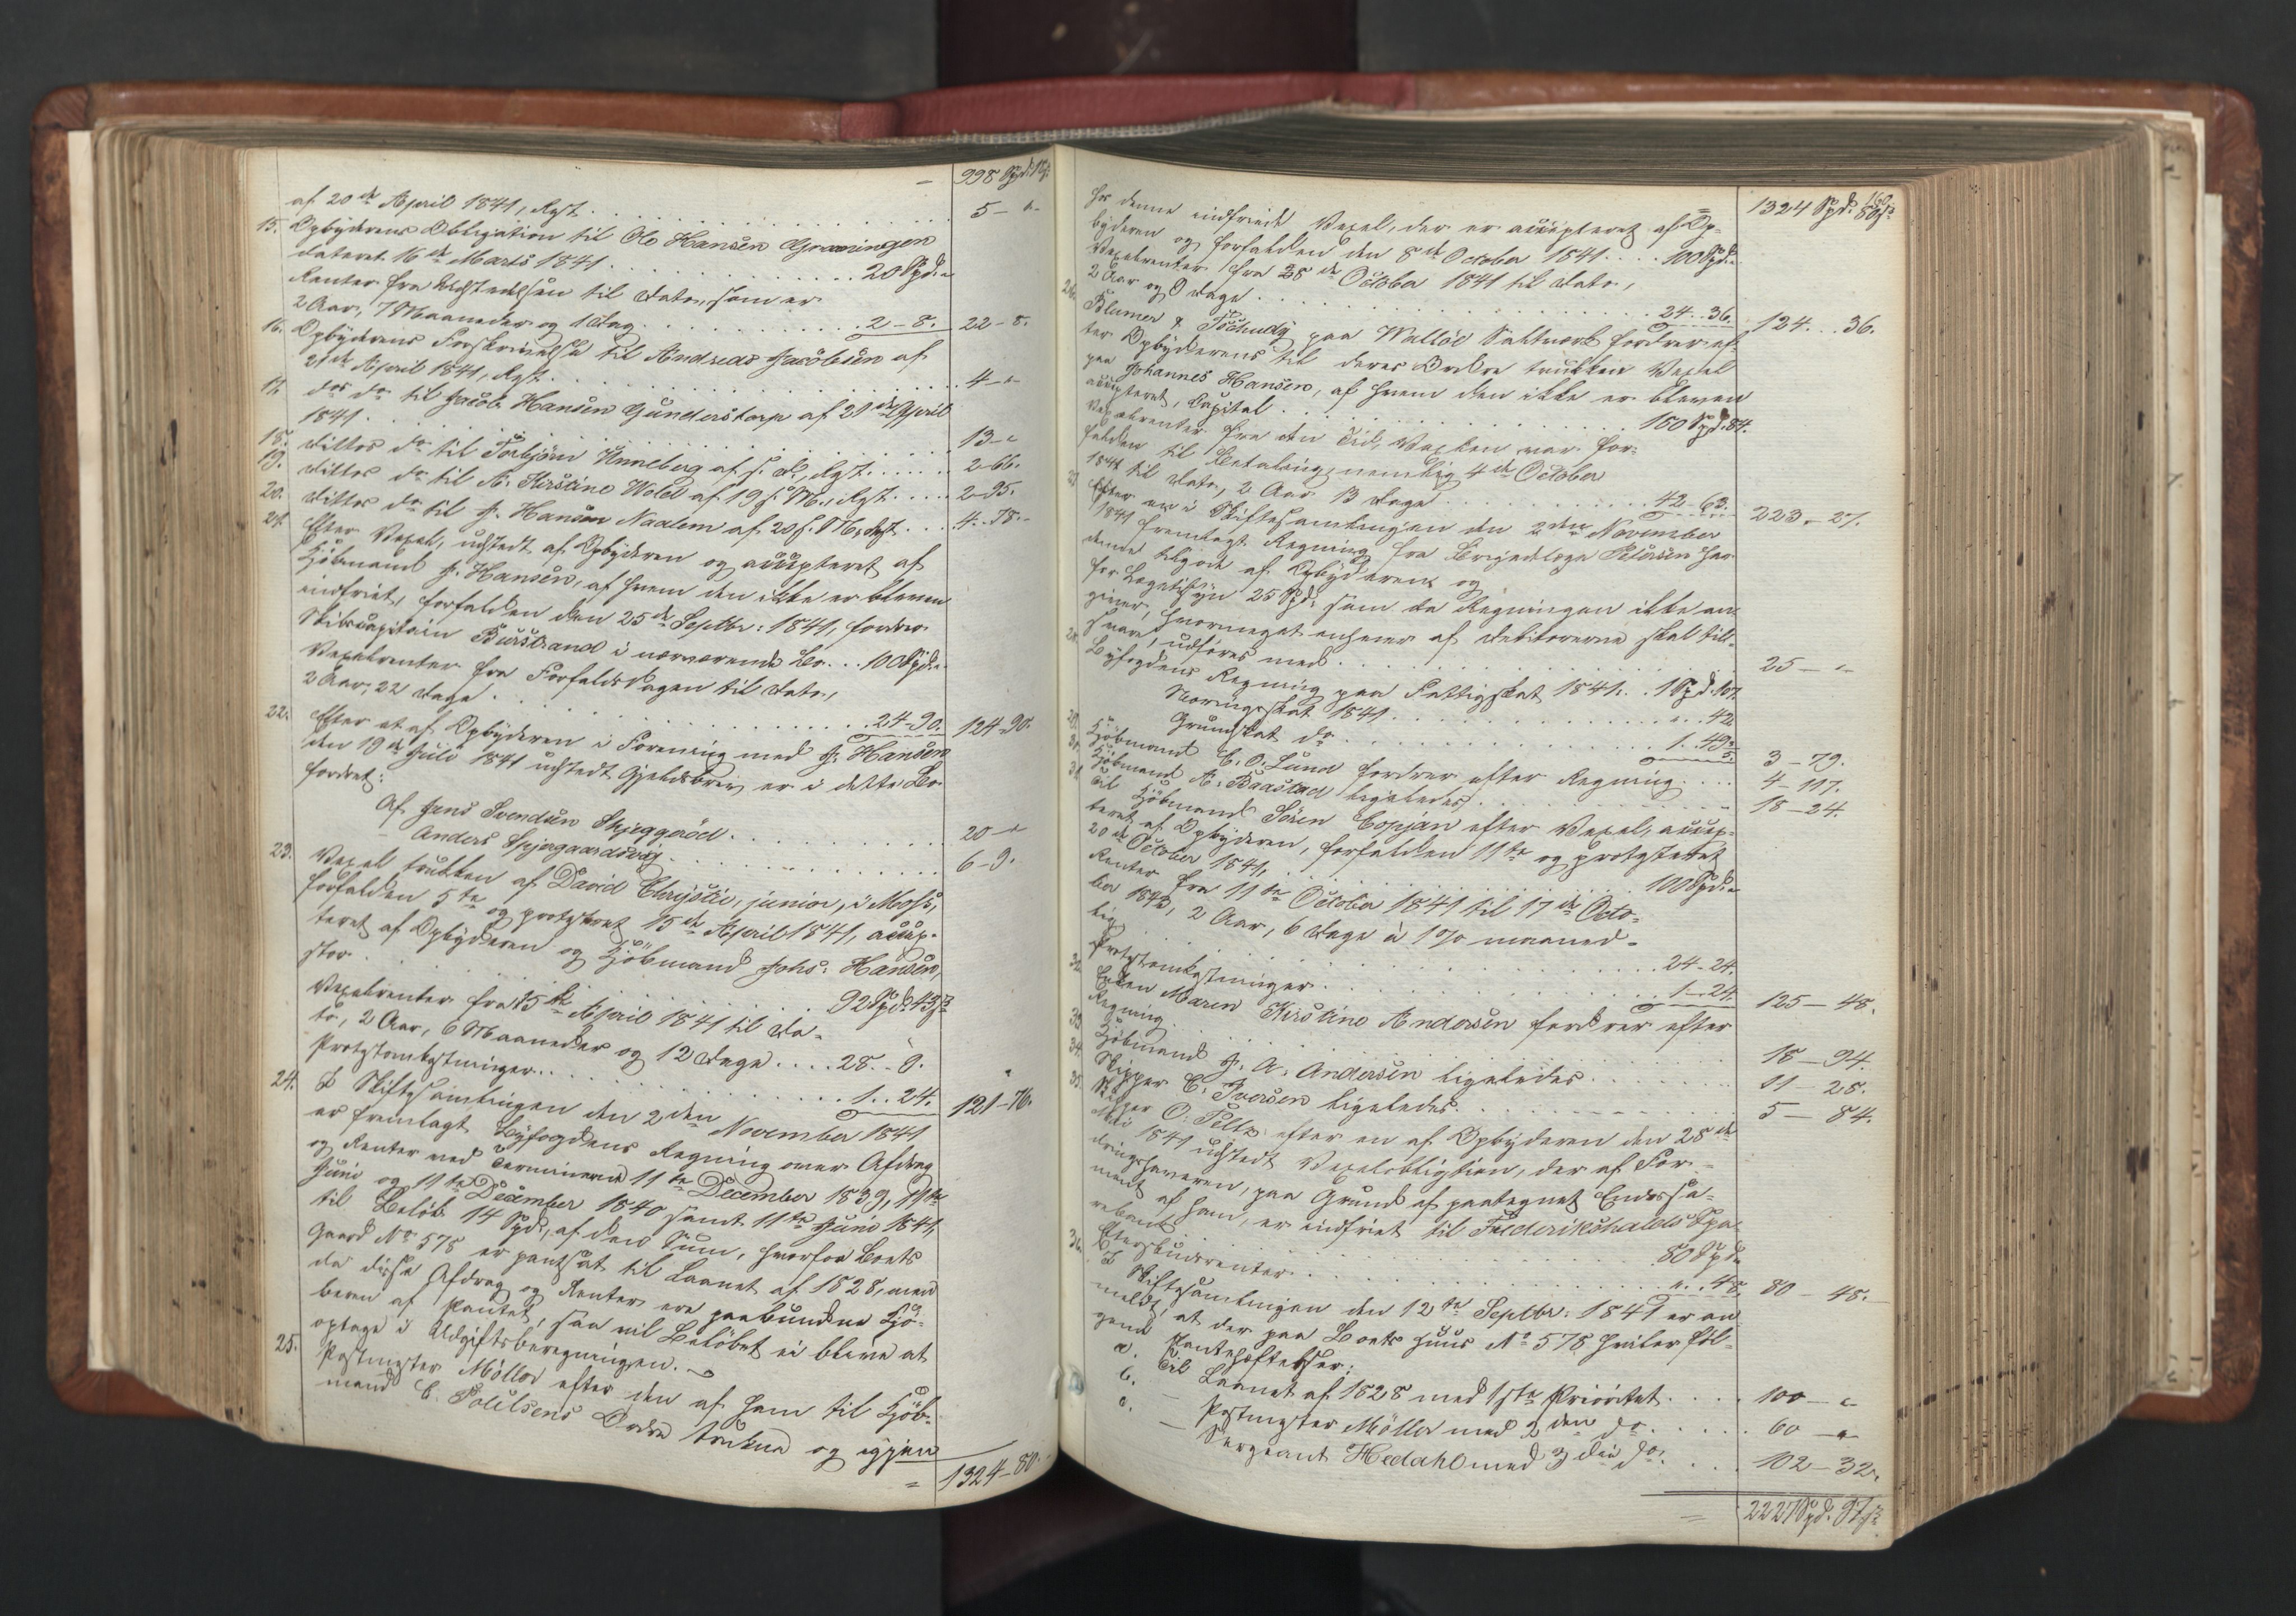 998 Spd. 18 ß
af 20de April 1841, Rest . . . 5 - "-
15. Opbyderens Obligation til Ole Hansen Grønningen
dateret 16de Marts 1841 . . . 20 Spd. "
Renter fra Udstedelsen til Dato, som er
2 Aar, 7 Maaneder og 1 Dag . . . 2 - 8. 22 - 8.
16. Opbyderens Forskrivelse til Andreas Jacobsen af
21de April 1841, Rest . . . 4 - "-
17. dos do til Jacob Hansen Gunderstorp af 21de April
1841 . . . 13 - "
18. dittos do til Torbjørn Unneberg af s. D., Rest . . . 2-66.
19. dittos do til A. Kirstine Wold af 19 s. M., Rest . . . 2-95.
20. dittos do til J. Hansen Naalem af 20 s. M., Rest . . . 4-78.-
21. Efter Vexel, udstedt af Opbyderen og accepteret af
Kjöbmand J. Hansen, af hvem den ikke er bleven
indfriet, forfalden den 25de Septbr: 1841, fordrer
Skibscapitain Burstrand i nærværende Bo . . . 100 Spd. "
Vexelrenter fra Forfaldsdagen til Dato,
2 Aar, 22 Dage . . . 24-90. 124-90.
22. Efter et af Opbyderen i Forening med J. Hansen
den 19de Juli 1841 udstedt Gjeldsbrev er i dette Bo
fordret:
Af Jens Svendsen Skjeggeröd . . . 20 - "
- Anders Skjergaardsvig . . . 6-9.
23. Vexel trukken af David Chrystie, junior, i Moss,
forfalden 5te og protesteret 15de April 1841, accep-
teret af Opbyderen og Kjöbmand Johs: Hansen,
stor . . . 92 Spd. 43 ß
Vexelrenter fra 15de April 1841 til Da-
to, 2 Aar, 6 Maaneder og 12 Dage . . . 28. - 9.
Protestomkostninger . . . 1..24. 121-76.
24. I Skiftesamlingen den 2den November 1841
er fremlagt Byfogdens Regning over Afdrag
og Renter ved Terminerne 11te December 1839, 11te
Juni og 11te December 1840 samt 11te Juni 1841,
til Beløb 14 Spd, af den Sum, hvorfor Boets
Gaard No 578 er pantsat til Laanet af 1828, men
da disse Afdrag og Renter ere paabundne Kjö-
beren af Pantet, saa vil Beløbet ei blive at
optage i Udgiftsberegningen.
25. Postmester Möller efter den af ham til Kjöb-
mand C. Poulsens Ordre trukne og igjen
= 1324-80.
= 1324 Spd. 80 ß
for denne indfriede Vexel, der er accepteret af Op-
byderen og forfalden den 8de October 1841 . . . 100 Spd. "
Vexelrenter fra 8de October 1841 til Dato,
2 Aar og 9 Dage . . . 24..36. 124...36.
26. Blumer & Tschudy paa Wallöe Saltværk fordrer ef-
ter Opbyderens til deres Ordre trukken Vexel
paa Johannes Hansen, af hvem den ikke er bleven
accepteret, Capital . . . 180 Spd. 84.
Vexelrenter fra den Tid, Vexlen var for-
falden til Betaling, nemlig 4de October
1841 til Dato, 2 Aar 13 Dage . . . 42-63. 223-27.
27. Efter en i Skiftesamlingen den 2den November
1841 fremlagt Regning fra Brigadelæge Petersen har
denne tilgode af Opbyderen og
for Legetilsyn 25 Spd, som da Regningen ikke an-
giver, hvormeget enhver af Debitorerne skal tilk-
svare, udføres med . . . 25 - "
28. Byfogdens Regning paa Fattigskat 1841 . . . 1 Spd. 107.
Næringsskat 1841 . . . ". . 42.
Grundskat do . . . 1. .49. 3 - 79.
29. Kjöbmand E. O. Lund fordrer efter Regning . . . 4-117.
30. Kjöbmand A. Baastad ligeledes . . . 18-24.
31. Til Kjöbmand Sören Copjan efter Vexel, accep-
teret af Opbyderen, forfalden 11te og protesteret
20de October 1841, . . . 100 Spd. "
Renter fra 11te October 1841 til 17de Octo-
ber 1843, 2 Aar, 6 Dage à 1 % maaned-
lig . . . 24-24.
Protestomkostninger . . . 1-24. 125-48.
32. Enken Maren Kirstine Andersen fordrer efter
Regning . . . 18-94.
33. Kjöbmand J. A. Andersen ligeledes . . . 11-28.
34. Skipper C. Iversen ligeledes . . . 5-84.
35. Skipper O. Peltz efter en af Opbyderen den 28de
Mai 1841 udstedt Vexelobligation, der af For-
dringshaveren, paa Grund af paategnet Endossa-
ment af ham, er indfriet til Frederikshalds Spa-
rebank . . . 80 Spd. "
Efterskudsrenter . . . ". . 48. 80-48.
36. I Skiftesamlingen den 12te Septbr: 1841 er an-
meldt, at der paa Boets Huus No 578 hviler föl-
gende Pantehæftelser:
a. Til Laanet af 1828 med 1ste Prioritet . . . 100 - "
b. - Postmester Möller med 2den do . . . 60 - "
c. - Sergeant Hedahl med 3die do . . . 102-32.
= 2227 Spd. 97 ß